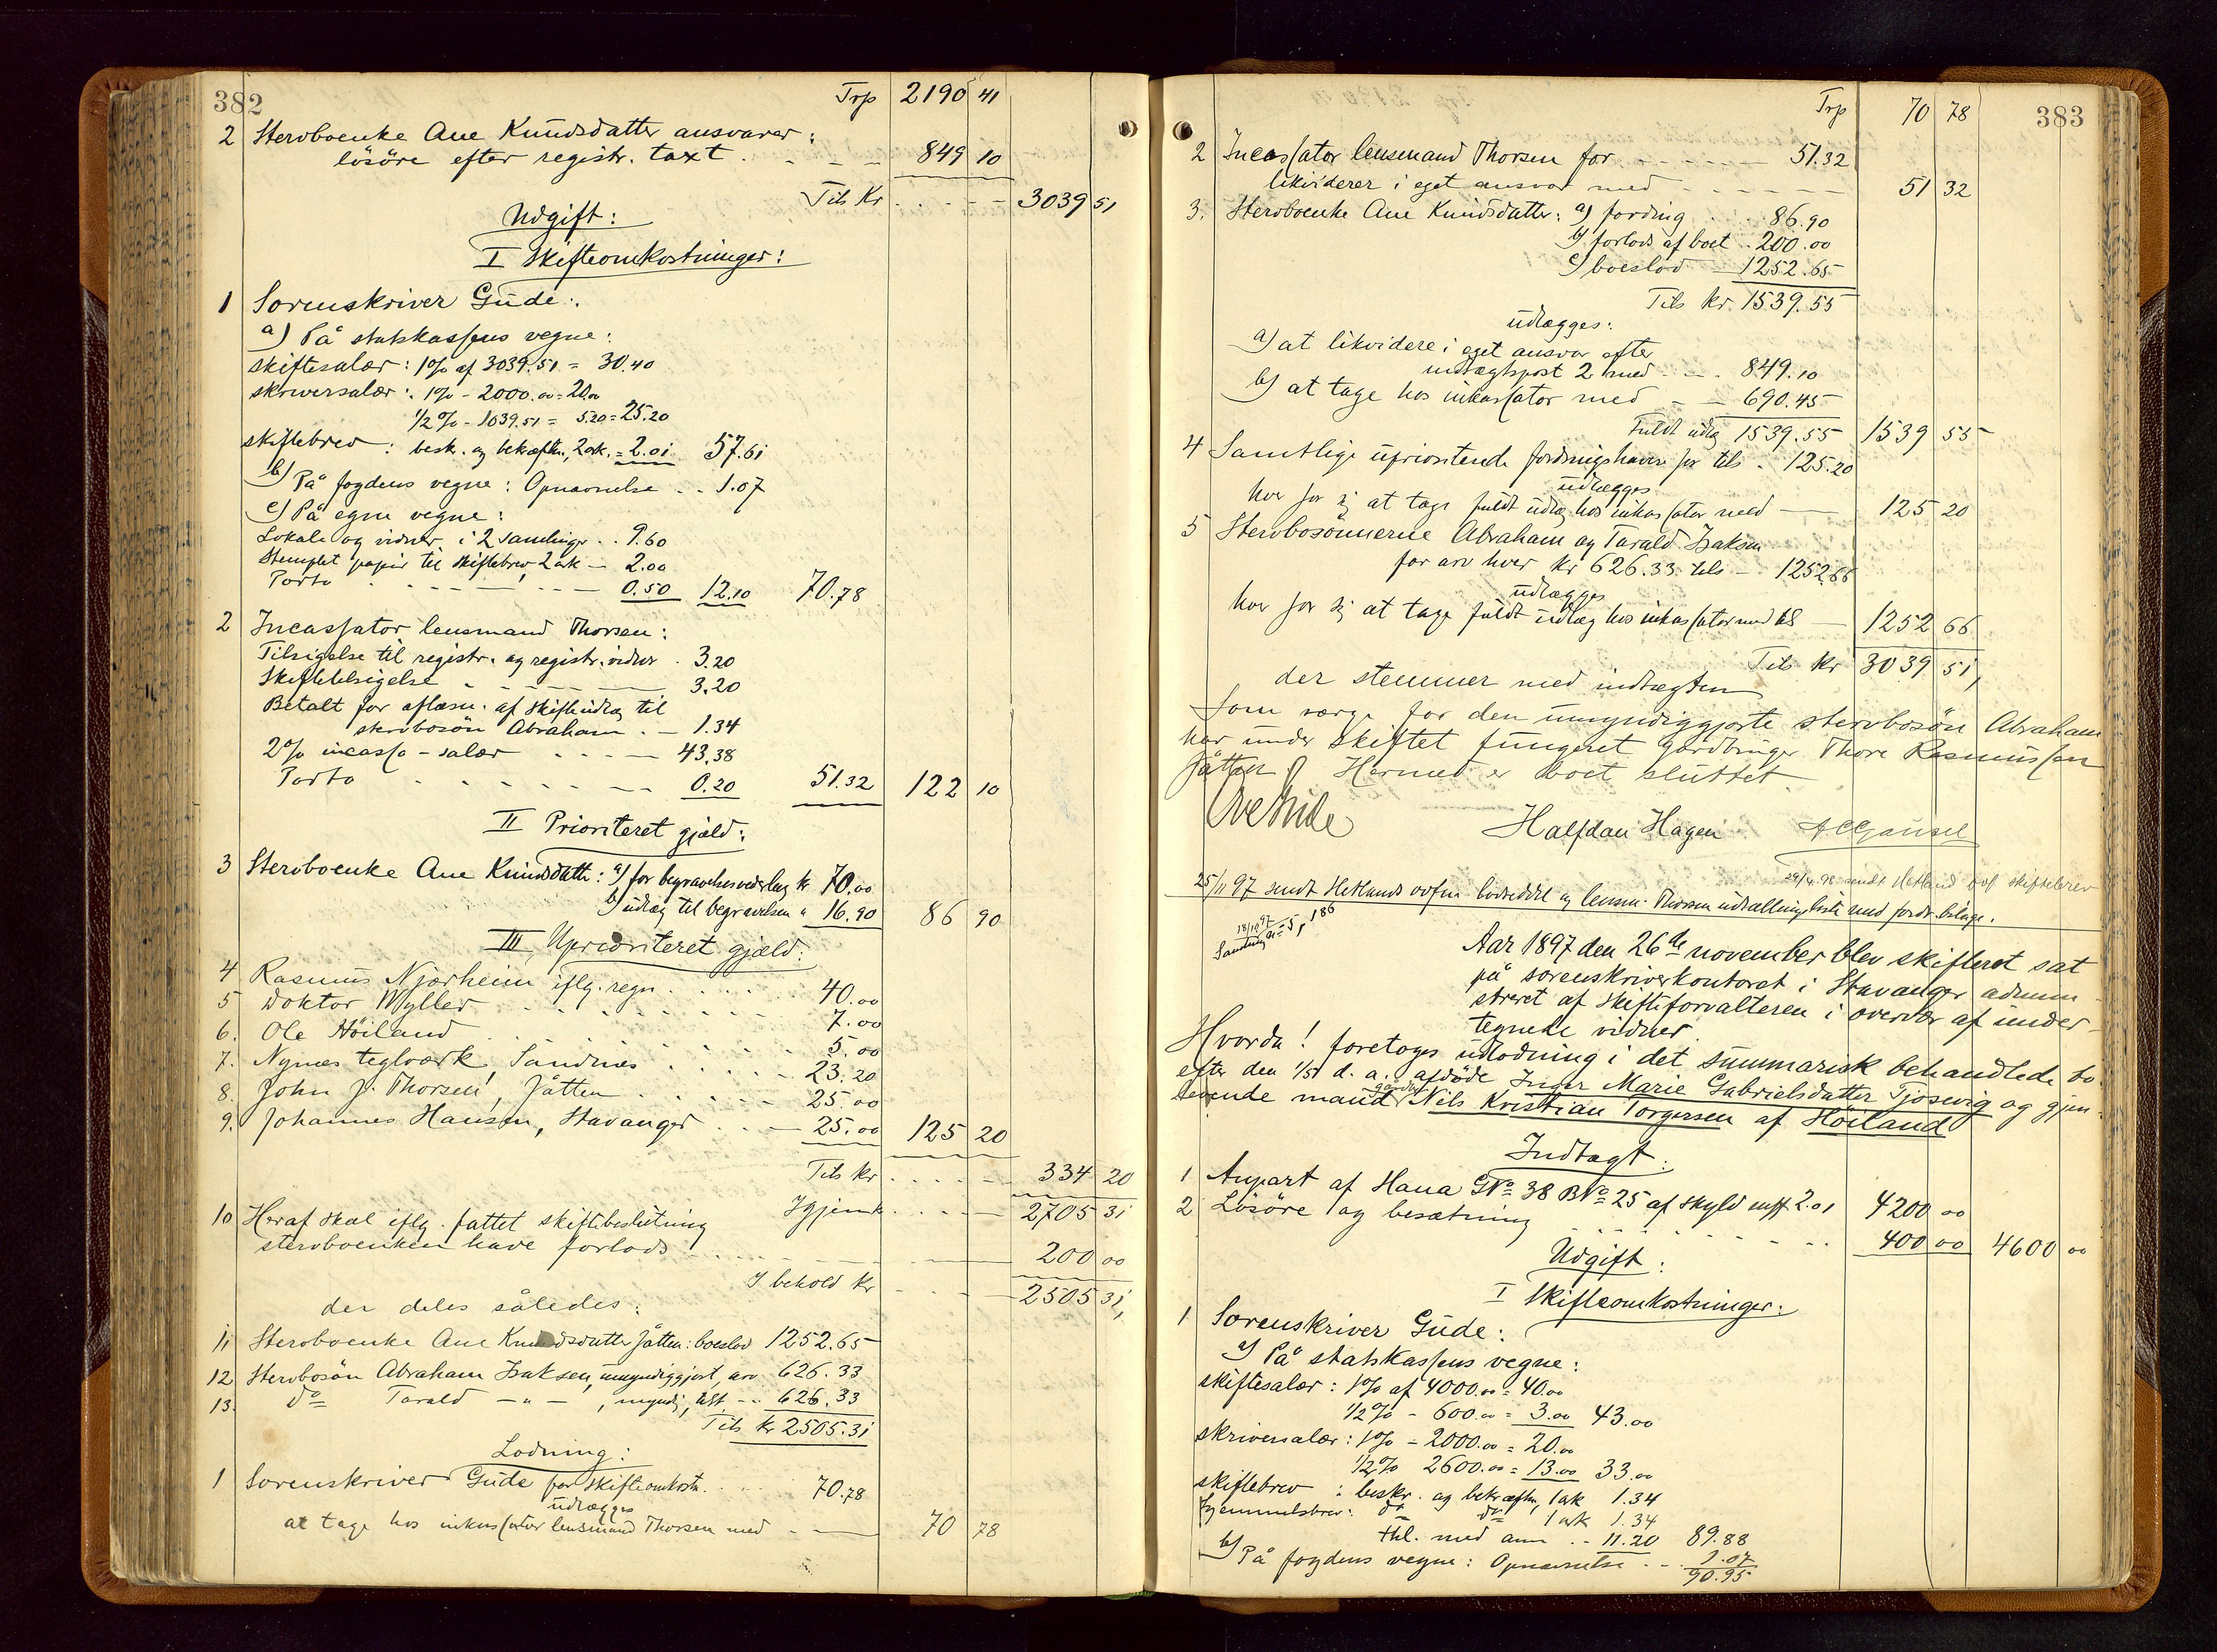 382
Trp 2190 41
2 Stervboenke Ane Knudsdatter ansvarer:
lösöre efter registr. taxt . - - - 849 10
Tils Kr . . . - - 3039 51
Udgift:
I Skifteomkostninger:
1 Sorenskriver Gude:
a) På statskassens vegne:
skiftesalær: 1% af 3039.51 = 30.40
skriversalær: 1% - 2000.00 = 20.00
1/2% - 1039.51 = 5.20 = 25.20
skiftebrev: besk. og bekræftn., 2 ark. = 2.01 57.61
b) På fogdens vegne: Opnævnelse . . 1.07
c) På egne vegne:
Lokale og vidner i 2 samlinger . . 9.60
Stemplet papir til skiftebrev, 2 ark - 2.00
Porto - - - - - 0.50 12.10 70.78
2 Incassator lensmand Thorsen:
Tilsigelse til registr. og registr. vidner . 3.20
Skiftetilsigelse - - - - 3.20
Betalt for aflæsn. af skifteudlæg til
stervbosön Abraham . - 1.34
2% incasso-salær . . . - 43.38
Porto . . . - - - 0.20 51.32 122 10
II Prioriteret gjæld:
3 Stervboenke Ane Knudsdatter: a) for begravelsesvederlag kr 70.00
b) udlæg til begravelsen " 16.90 86 90
III Uprioriteret gjæld:
4 Rasmus Njærheim iflg. regn . . . . 40.00
5 Doktor Wyller . . . . . 7.00
6. Ole Höiland . . . . . 5.00
7. Nymes teglværk, Sandnes . . . . 23.20
8. John J. Thorsen, Jåtten . . . . 25.00
9. Johannes Hansen, Stavanger . . - 25.00 125 20
Tils kr . . . - 334 20
Igjen kr . . . - 2705 31
10 Heraf skal iflg. fattet skiftebeslutning
stervboenken have forlods . . . - 200 00
I behold kr - - - 2505 31,
der deles således:
11 Stervboenke Ane Knudsdatter Jåtten: boeslod 1252.65
12 Stervbosön Abraham Isaksen, umyndiggjort, arv 626.33
13. do Tarald - " - , myndig, - . 626.33
Tils kr 2505.31
Lodning:
1 Sorenskriver Gude for skifteomkostn. . . . 70.78
udlægges
at tage hos inkassator lensmand Thorsen med - - 70 78
Trp 70 78
383
2 Incassator lensmand Thorsen for - - - - 51.32
likviderer i eget ansvar med - - - - - 51 32
3. Stervboenke Ane Knudsdatter: a) fordring . . . 86.90
b) forlods af boet . 200.00
c) boeslod - 1252.65
Tils kr. 1539.55
udlægges:
a) at likvidere i eget ansvar efter
indtægtspost 2 med - - . 849.10
b) at tage hos inkassator med - - 690.45
Fuldt udlæg 1539.55 1539 55
4 Samtlige uprioriterede fordringshavere for tils . 125.20
udlægges
hver for sig at tage fuldt udlæg hos inkassator med - 125 20
5 Stervbosönnerne Abraham og Tarald Isaksen
for arv hver kr 626.33 tils - 1252.66
udlægges
hver for sig at tage fuldt udlæg hos inkassator med tils - 1252 66
Tils kr 3039 51,
der stemmer med indtægten
Som værge for den umyndiggjorte stervbosön Abraham
har under skiftet fungeret gårdbruger Thore Rasmussen
Jåtten. Hermed er boet sluttet
Ove Gude
Halfdan Hagen A C Gausel
29/4 98 sendt Hetland ovf skiftebrev
25/11 97 sendt Hetlands ovfm lodseddel og lensm. Thorsen udtællingsliste med fordr. bilage.
18/10 97
Samling 5, 186
Aar 1897 den 26de november blev skifteret sat
på sorenskriverkontoret i Stavanger admini-
streret af skifteforvalteren i overvær af under-
tegnede vidner.
Hvorda! foretoges udlodning i det summarisk behandlede bo
efter den 1/5 d. a. afdöde Inger Marie Gabrielsdatter Tjosevig og gjen-
levende mand gårdbr Nils Kristian Torgersen af Höiland
Indtægt:
1 Anpart af Hana GNo 38 BNo 25 af skyld mrk 2.01 4200 00
2 Lösöre og besætning . . . - - - . . 400 00 4600 00
Udgift:
I Skifteomkostninger:
1 Sorenskriver Gude:
a) På statskassens vegne:
skiftesalær: 1% af 4000.00 = 40.00
1/2% - 600.00 = 3.00 43.00
skriversalær: 1% - 2000.00 = 20.00
1/2% 2600.00 = 13.00 33.00
skiftebrev: beskr. og bekræftn, 1 ark 1.34
hjemmelsbrev: do do 1 ark 1.34
thl. med ann . . 11.20 89.88
b) På fogdens vegne: Opnævnelse . . . 1.07
90.95